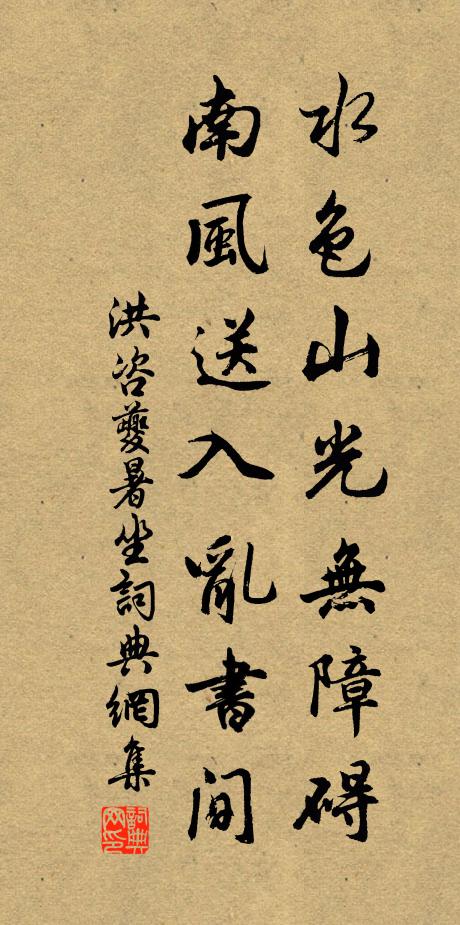 水色山光無障碍
南風送入亂書間
洪咨夔暑坐詞典網集
詞典網印